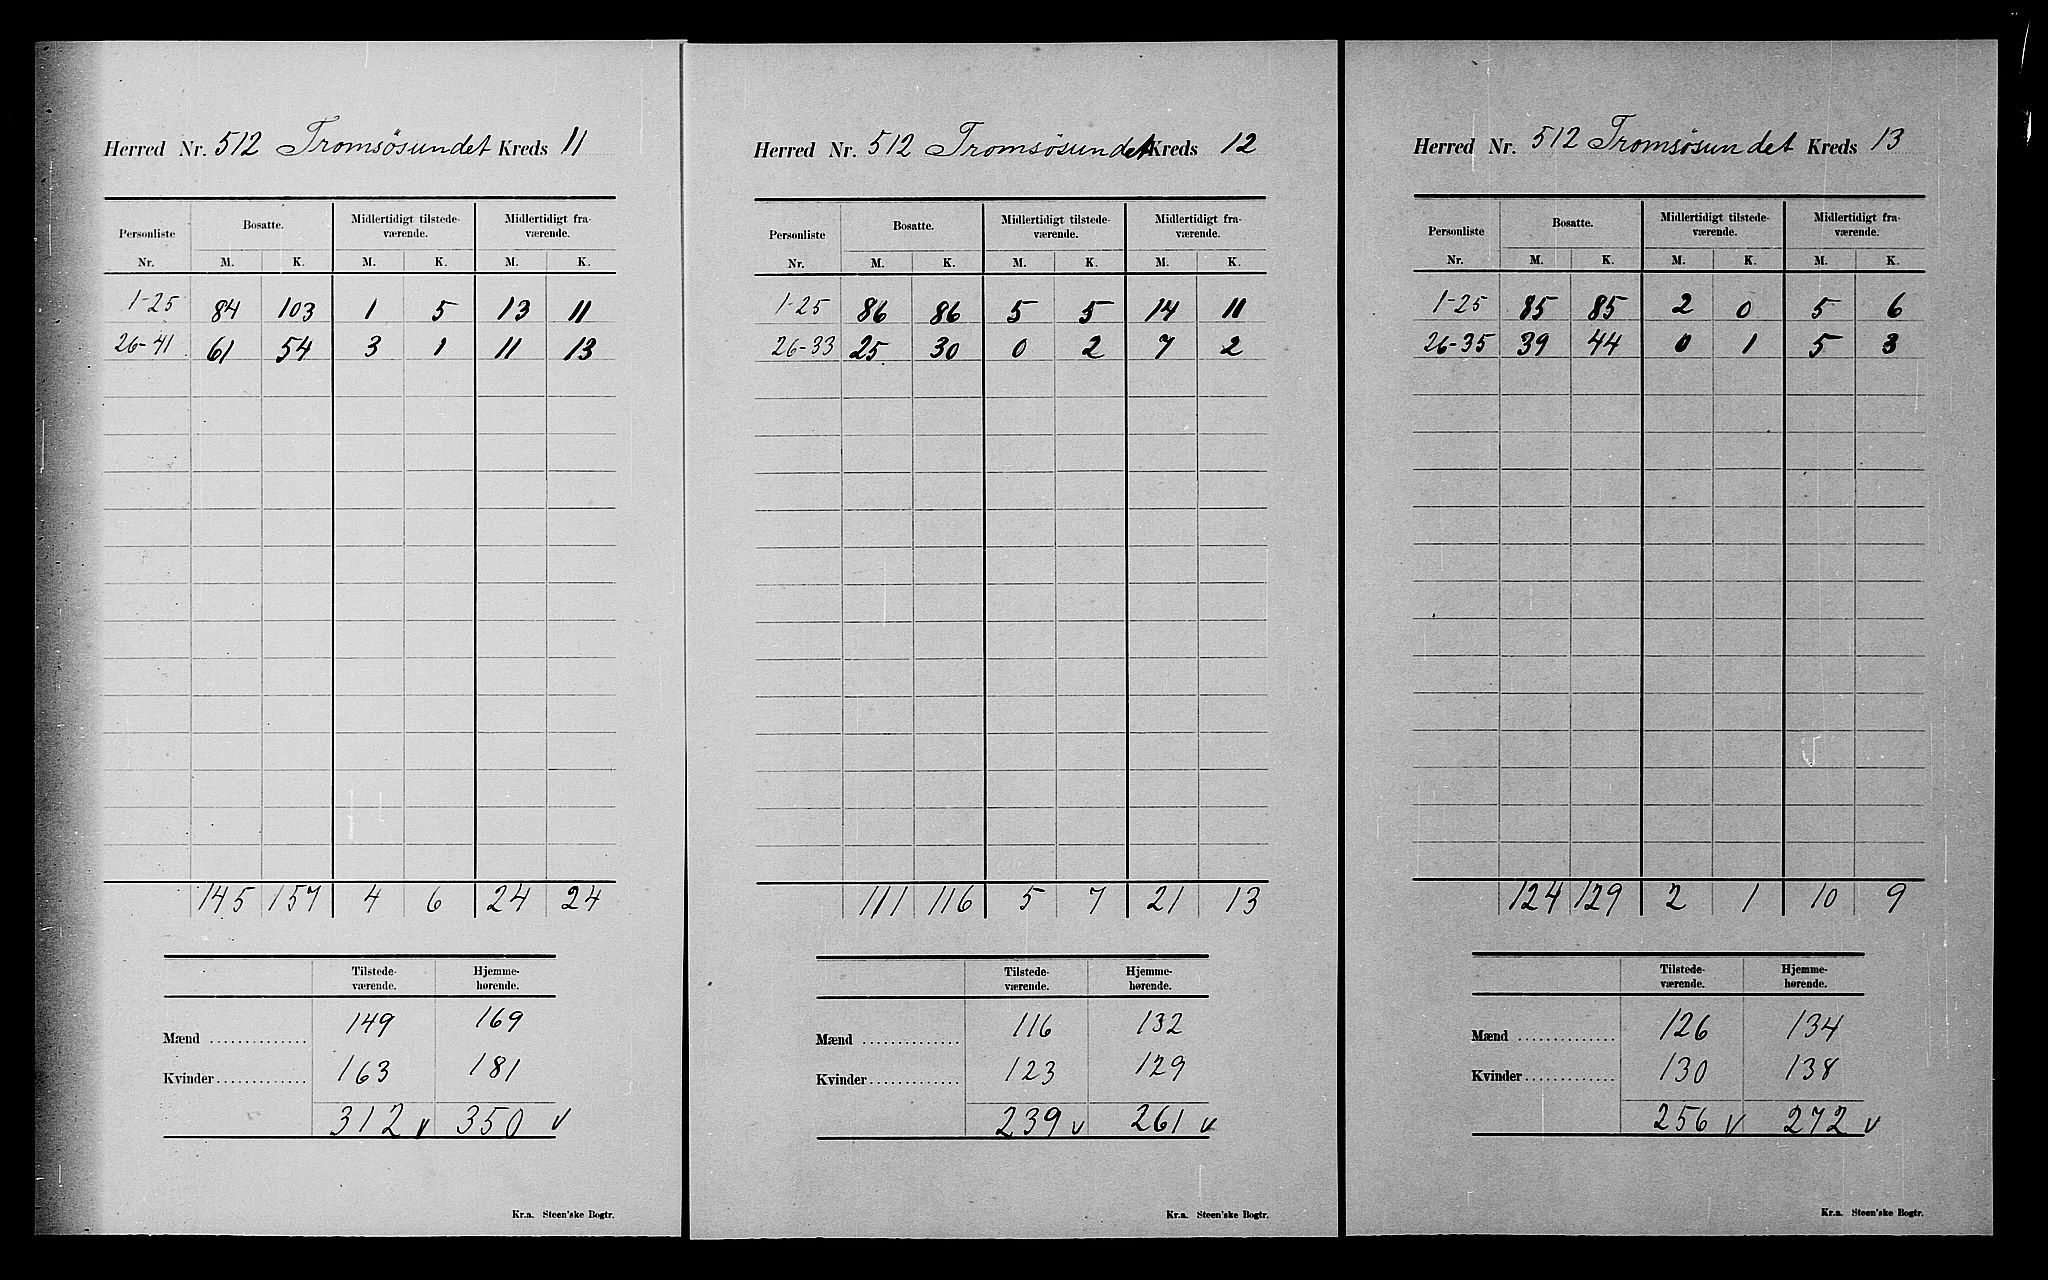 Herred Nr. 512 Tromsøsundet Kreds 11
Personliste Bosatte. Midlertidigt tilstede- Midlertidigt fra-
værende. værende.
Nr. M. K. M. K. M. K.
1-25 84 103 1 5 13 11
26-41 61 54 3 1 11 13
145 157 4 6 24 24
Tilstede- Hjemme-
værende. hørende.
Mænd .............. 149 169
Kvinder............. 163 181
312 v 350 v
Kr.a. Steen'ske Bogtr.
Herred Nr. 512 Tromsøsundet Kreds 12
Personliste Bosatte. Midlertidigt tilstede- Midlertidigt fra-
værende. værende.
Nr. M. K. M. K. M. K.
1-25 86 86 5 5 14 11
26-33 25 30 0 2 7 2
111 116 5 7 21 13
Tilstede- Hjemme-
værende. hørende.
Mænd .............. 116 132
Kvinder............. 123 129
239 v 261 v
Kr.a. Steen'ske Bogtr.
Herred Nr. 512 Tromsøsundet Kreds 13
Personliste Bosatte. Midlertidigt tilstede- Midlertidigt fra-
værende. værende.
Nr. M. K. M. K. M. K.
1-25 85 85 2 0 5 6
26-35 39 44 0 1 5 3
124 129 2 1 10 9
Tilstede- Hjemme-
værende. hørende.
Mænd .............. 126 134
Kvinder............. 130 138
256 v 272 v
Kr.a. Steen'ske Bogtr.